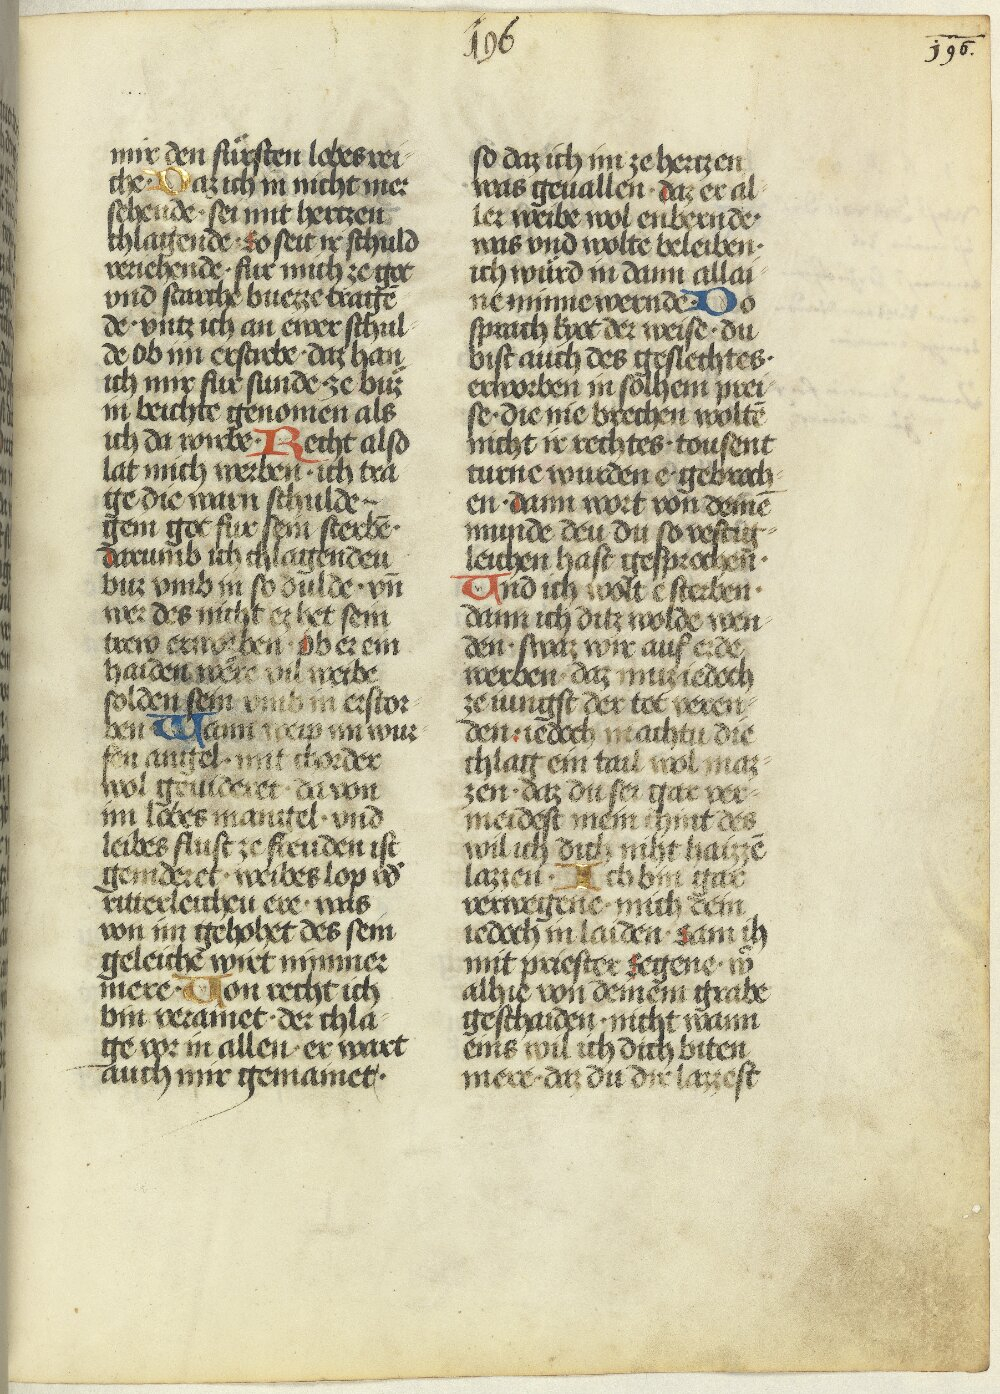 196
196.
mir den fürsten lobes rei-
che· Daz ich in nicht mer
sehende· sei mit hertzen
chlagende· so seit ir schuld
veriehende· fur mich ze got
vnd starche buezze tragē
de· vntz ich an ewer schul-
de ob im erstirbe· daz han
ich mir fur sunde· ze bůz
in beichte genomen als
ich da
Recht also
lat mich werben· ich tra
ge die warn schulde
gein got fur sein sterbē·
darumb ich chlagenden
bur vmb in so dulde· vn̄
wer des nicht er het sein
trew erworben· ob er ein
haiden wěre vil weibe
solden sein vmb in erstor-
ben· Wann
wur-
fen angel· mit chorder
wol geuideret· da von
im lobes mangel· vnd
leibes flust ze freuden ist
gemideret· weibes lop vn̄
ritterleichev ere· was
von im gehohet des sein
geleichē wirt nymmer
mere· Von recht ich
bin verainet· der chla-
ge vor in allen· er wart
auch mir gemainet·
so daz ich im ze hertzen
was geuallen· daz er al-
ler weibe wol enbernde·
was vnd wolte beleiben·
ich würd in dann allai-
ne minne wernde· Do
sprach kyot der weise· du
bist auch des geslechtes·
erworben in sölhem prei-
se· die nie brechen woltē
nicht ir rechtes· tousent
turne wurden e· gebroch-
en· dann wort von deinē
munde dev du so vestig-
leichen hast gesprochen·
Und ich wolt e sterben·
dann ich ditz wolde wen-
den· swaz wir auf erde
werben· daz muz iedoch
ze iungst der tot veren-
den· iedoch machtu die
chlag ein tail wol maz-
zen· daz du sei gar ver-
meidest mein chint des
wil ich dich niht haizzē
lazzen· Ich bin gar
verwegene· mich dein
iedoch in laiden· sam ih
mit priester segene·
alhie von deinem grabe
geschaiden· nicht wann
eins wil ich dich biten
mere· daz du dir lazzest